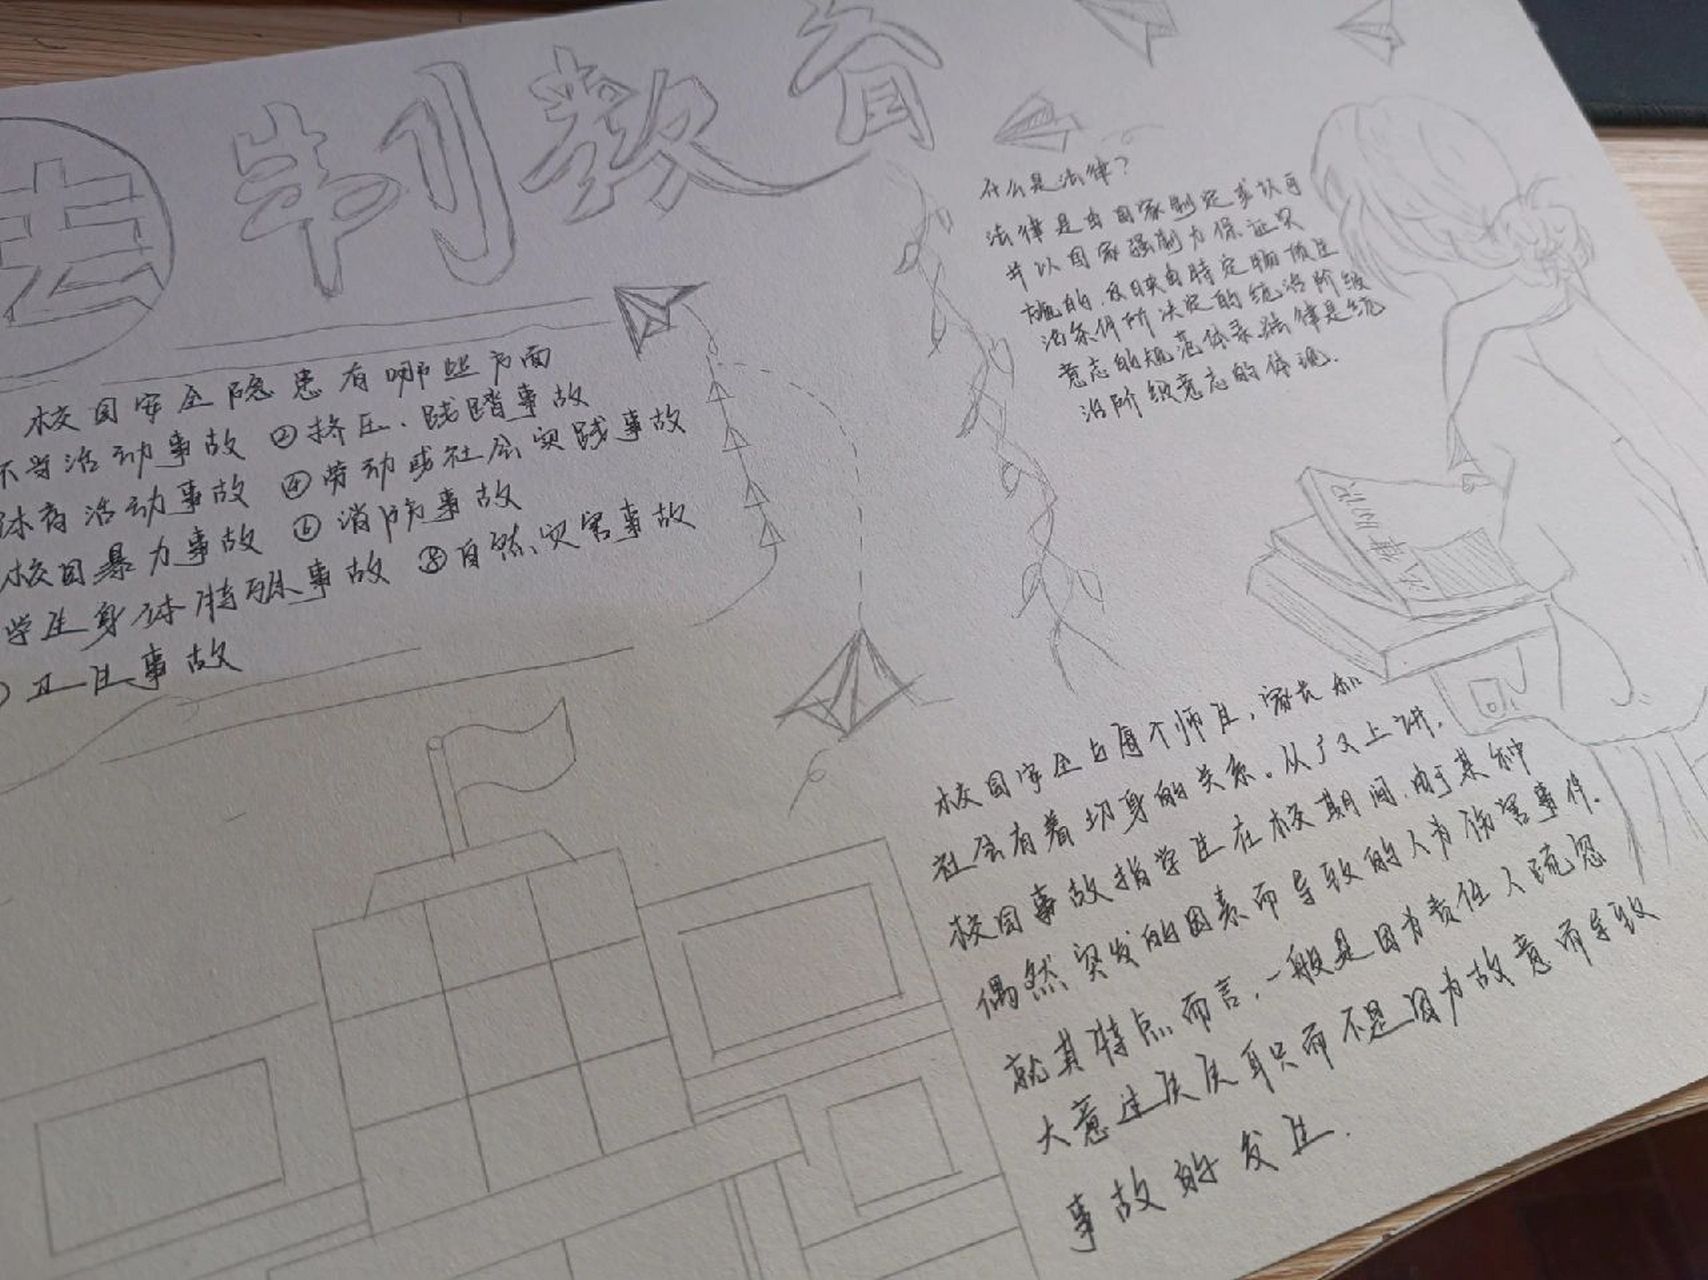 法制教育
校园安全隐患有哪些方面
不当活动事故 ②挤压、践踏事故
体育活动事故 ④劳动或社会实践事故
校园暴力事故 ⑥消防事故
学生身体特殊事故 ⑧自然灾害事故
卫生事故
什么是法律？
法律是由国家制定或认可
并以国家强制力保证实
施的，反映由特定物质生
活条件所决定的统治阶级
意志的规范体系，法律是统
治阶级意志的体现.
法律知识
校园安全与每个师生，家长和
社会有着切身的关系。从广义上讲，
校园事故指学生在校期间，由于某种
偶然突发的因素而导致的人为伤害事件.
就其特点而言，一般是因为责任人疏忽
大意过失失职而不是因为故意而导致
事故的发生.